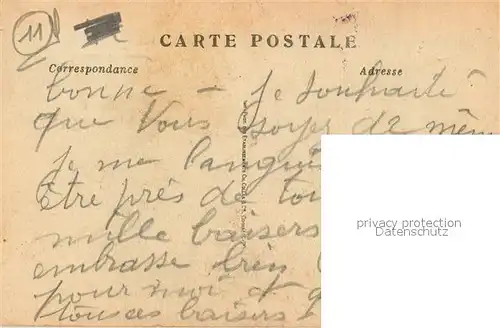 11
CARTE POSTALE
Correspondance Adresse
bonne – je souhaite
que vous soyez de même
je me langui
être près de tou
mille baisers
embrasse bien
pour moi et
tous ces baisers
privacy protection
Datenschutz